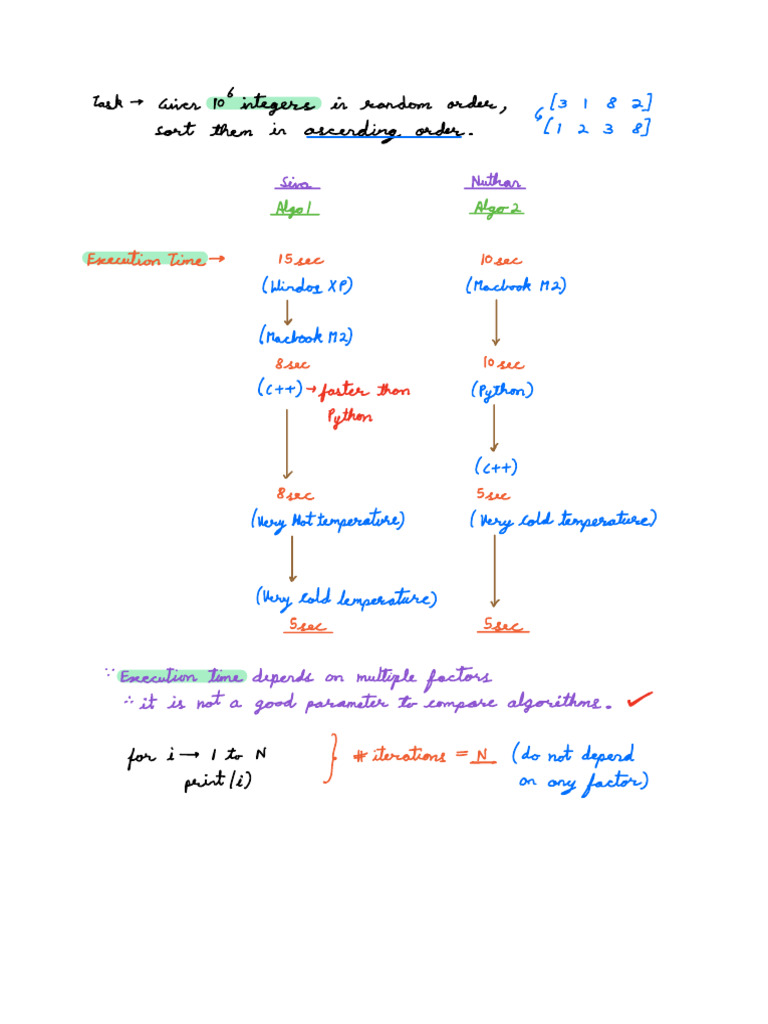 Task → Given 10^6 integers in random order,
sort them in ascending order.
[3 1 8 2]
↳ [1 2 3 8]
Siva Nuthan
Algo 1 Algo 2
Execution Time → 15 sec 10 sec
(Windos XP) (Macbook M2)
(Macbook M2)
8 sec 10 sec
(C++) → faster than (Python)
Python
(C++)
8 sec 5 sec
(Very Hot temperature) (Very Cold temperature)
(Very Cold temperature)
5 sec 5 sec
∵ Execution time depends on multiple factors
∴ it is not a good parameter to compare algorithms. ✓
for i → 1 to N } # iterations = N (do not depend
print(i) on any factor)